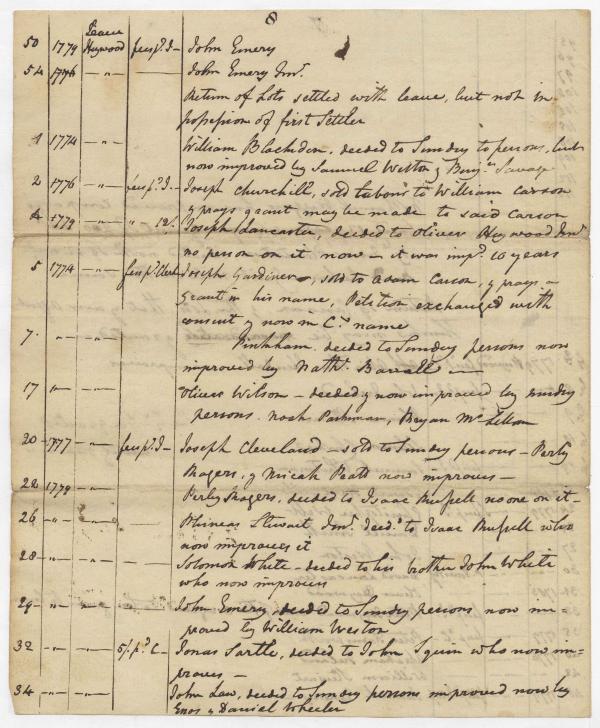 8
Leave
50 1779 Heywood fees pd. I— John Emery
54 1776 —"— — John Emery Junr.
Return of Lots settled with leave, but not in
possession of first Settler
1 1774 —"— William Blackden, deeded to Sundry persons, but
now improved by Samuel Weston & Benjn. Savage
2 1776 —"— fees pd. I— Joseph Churchill, sold labour to William Carson
& prays grant may be made to said Carson
4 1779 —"— " 12/. Joseph Lancaster, deeded to Oliver Heywood Junr
no person on it now — it was impd. 10 years
5 1774 —"— fees pd. Clerk Joseph Gardiner, sold to Adam Carson, & prays a
Grant in his name, Petition exchanged with
consent & now in C.s name
7. —"— —"— Pinkham. deeded to Sundry persons now
improved by Nathl. Barrall —
17 —"— —"— Oliver Wilson — deeded & now improved by sundry
persons. Noah Parkman, Bryan McLellon
20 1777 —"— fees pd. I— Joseph Cleveland — sold to Sundry persons — Perly
Rogers, & Micah Peatt now improves —
22 1779 —"— Perly Rogers, deeded to Isaac Russell no one on it —
26 —"— —"— — Phineas Stewart Junr. deedd. to Isaac Russell who
now improves it
28 —"— —"— — Solomon White — deeded to his brother John White
who now improves
29 —"— —"— John Emery, deeded to Sundry persons now im=
proved by William Weston
32 —"— —"— 5/. pd. C— Jonas Sartle, deeded to John Squin who now im=
proves —
34 —"— —"— John Law, deeded to Sundry persons improved now by
Enos & Daniel Wheeler